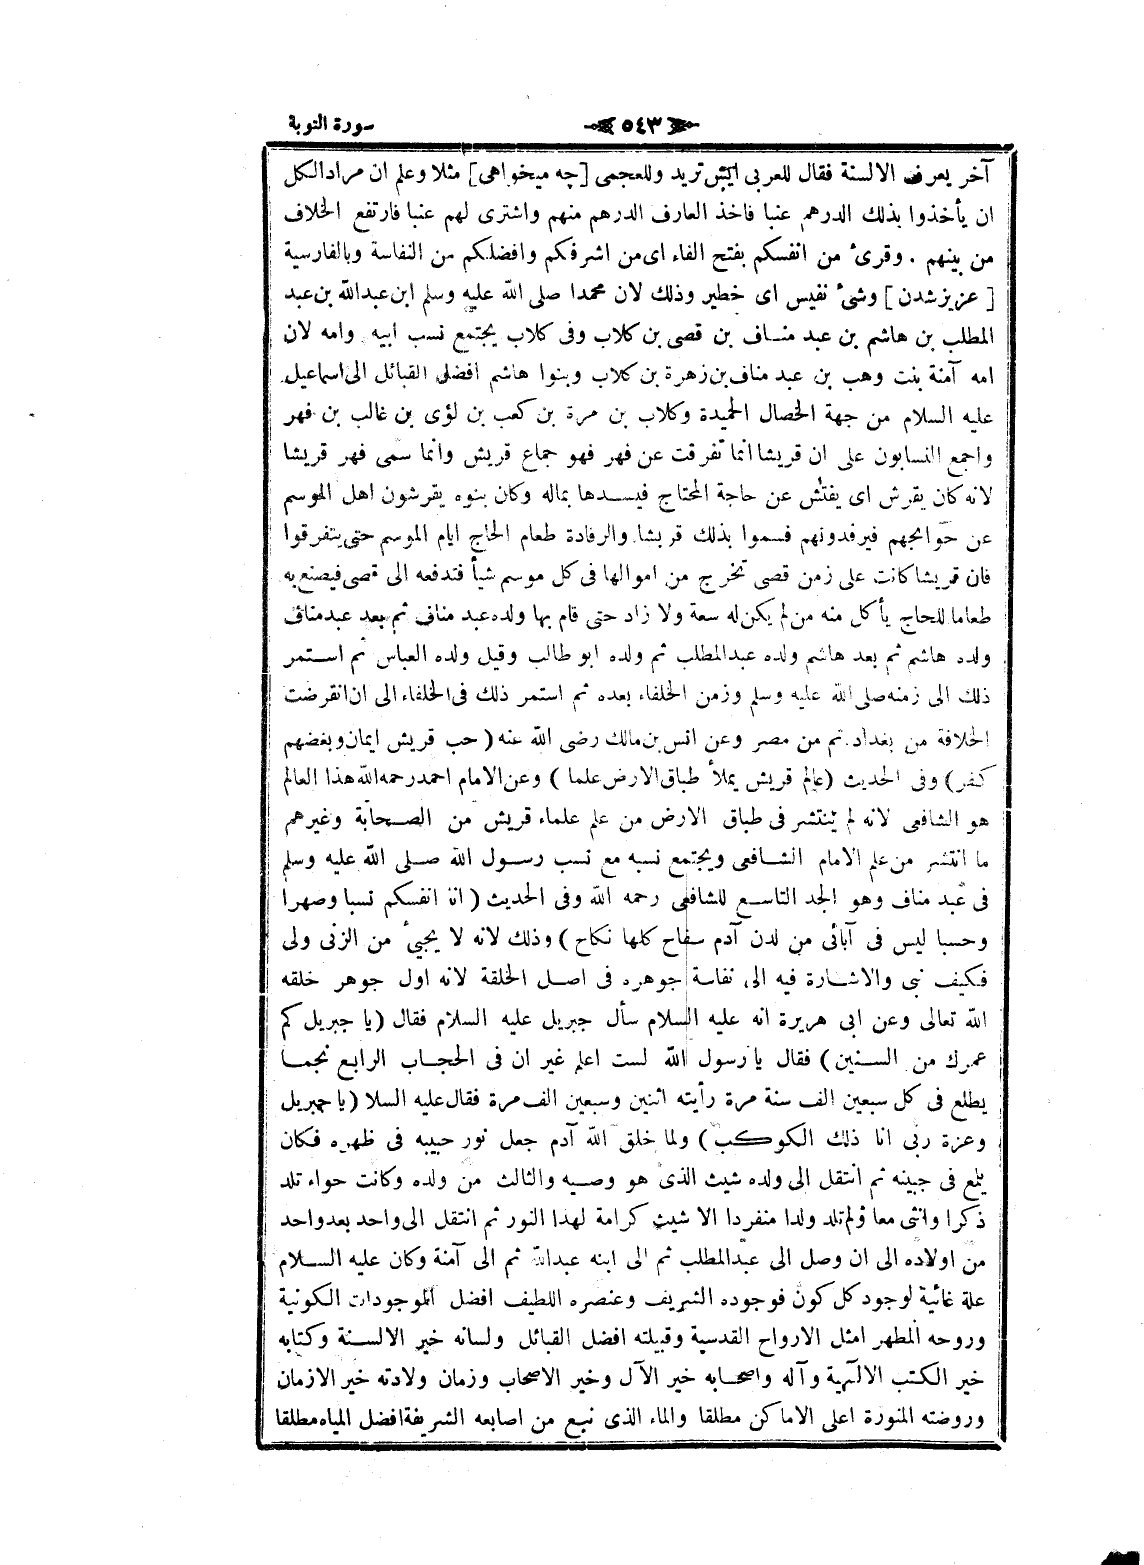 سورة التوبة
٥٤٣
آخر يعرف الالسنة فقال للعربى ايش تريد وللعجمى [چه ميخواهى] مثلا وعلم ان مراد الكل
ان يأخذوا بذلك الدرهم عنبا فاخذ العارف الدرهم منهم واشترى لهم عنبا فارتفع الخلاف
من بينهم . وقرئ من انفسكم بفتح الفاء اى من اشرفكم وافضلكم من النفاسة وبالفارسية
[عزيز شدن] وشئ نفيس اى خطير وذلك لان محمدا صلى الله عليه وسلم ابن عبدالله بن عبد
المطلب بن هاشم بن عبد مناف بن قصى بن كلاب وفى كلاب يجتمع نسب ابيه وامه لان
امه آمنة بنت وهب بن عبد مناف بن زهرة بن كلاب وبنوا هاشم افضل القبائل الى اسماعيل
عليه السلام من جهة الخصال الحميدة وكلاب بن مرة بن كعب بن لؤى بن غالب بن فهر
واجمع النسابون على ان قريشا انما تفرقت عن فهر فهو جماع قريش وانما سمى فهر قريشا
لانه كان يقرش اى يفتش عن حاجة المحتاج فيسدها بماله وكان بنوه يقرشون اهل الموسم
عن حوائجهم فيرفدونهم فسموا بذلك قريشا والرفادة طعام الحاج ايام الموسم حتى يتفرقوا
فان قريشا كانت على زمن قصى تخرج من اموالها فى كل موسم شيأ فتدفعه الى قصى فيصنع به
طعاما للحاج يأكل منه من لم يكن له سعة ولا زاد حتى قام بها ولده عبد مناف ثم بعد عبد مناف
ولده هاشم ثم بعد هاشم ولده عبدالمطلب ثم ولده ابو طالب وقيل ولده العباس ثم استمر
ذلك الى زمنه صلى الله عليه وسلم وزمن الخلفاء بعده ثم استمر ذلك فى الخلفاء الى ان انقرضت
الخلافة من بغداد ثم من مصر وعن انس بن مالك رضى الله عنه (حب قريش ايمان وبغضهم
كفر) وفى الحديث (عالم قريش يملأ طباق الارض علما) وعن الامام احمد رحمه الله هذا العالم
هو الشافعى لانه لم ينتشر فى طباق الارض من علم علماء قريش من الصحابة وغيرهم
ما انتشر من علم الامام الشافعى ويجتمع نسبه مع نسب رسول الله صلى الله عليه وسلم
فى عبد مناف وهو الجد التاسع للشافعى رحمه الله وفى الحديث (انا انفسكم نسبا وصهرا
وحسبا ليس فى آبائى من لدن آدم سفاح كلها نكاح) وذلك لانه لا يجئ من الزنى ولى
فكيف نبى والاشارة فيه الى نفاسة جوهره فى اصل الخلقة لانه اول جوهر خلقه
الله تعالى وعن ابى هريرة انه عليه السلام سأل جبريل عليه السلام فقال (يا جبريل كم
عمرك من السنين) فقال يا رسول الله لست اعلم غير ان فى الحجاب الرابع نجما
يطلع فى كل سبعين الف سنة مرة رأيته اثنين وسبعين الف مرة فقال عليه السلا (يا جبريل
وعزة ربى انا ذلك الكوكب) ولما خلق الله آدم جعل نور حبيبه فى ظهره فكان
يلمع فى جبينه ثم انتقل الى ولده شيث الذى هو وصيه والثالث من ولده وكانت حواء تلد
ذكرا وانثى معا ولم تلد ولدا منفردا الا شيث كرامة لهذا النور ثم انتقل الى واحد بعد واحد
من اولاده الى ان وصل الى عبدالمطلب ثم الى ابنه عبدالله ثم الى آمنة وكان عليه السلام
علة غائية لوجود كل كون فوجوده الشريف وعنصره اللطيف افضل الموجودات الكونية
وروحه المطهر امثل الارواح القدسية وقبيلته افضل القبائل ولسانه خير الالسنة وكتابه
خير الكتب الالهية وآله واصحابه خير الآل وخير الاصحاب وزمان ولادته خير الازمان
وروضته المنورة اعلى الاماكن مطلقا والماء الذى نبع من اصابعه الشريفة افضل المياه مطلقا